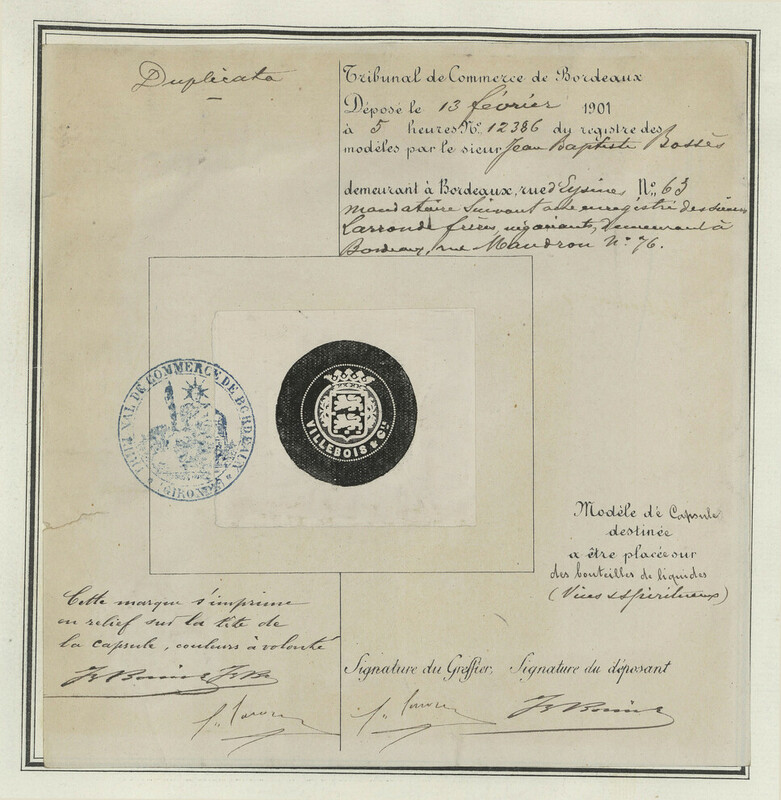 Duplicata
Tribunal de Commerce de Bordeaux
Déposé le 13 février 1901
à 5 heures N° 12386 du registre des
modèles par le sieur Jean Baptiste Bossès
demeurant à Bordeaux, rue d'Eysines N° 63
mandataire suivant acte enregistré des sieurs
Larronde frères, négociants, demeurant à
Bordeaux, rue Mandron N° 76.
TRIBUNAL DE COMMERCE DE BORDEAUX
(GIRONDE)
VILLEBOIS & Cie
Modèle de Capsule
destinée
a être placée sur
des bouteilles de liquides
(Vins & Spiritueux)
Cette marque s'imprime
en relief sur la tête de
la capsule, couleurs à volonté
Signature du Greffier, Signature du déposant